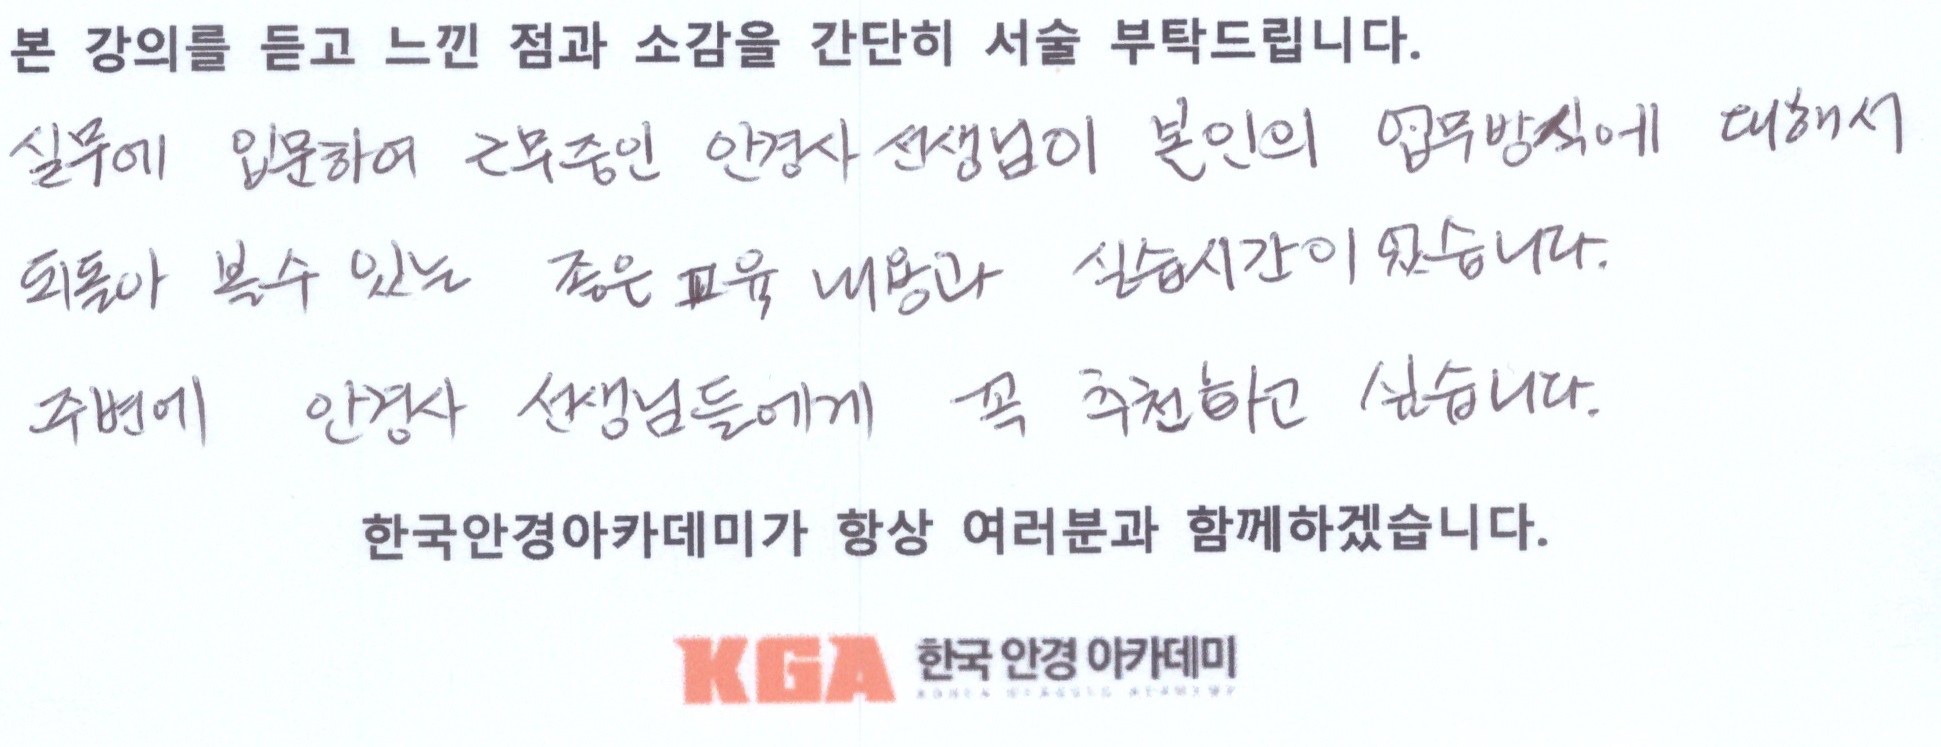 본 강의를 듣고 느낀 점과 소감을 간단히 서술 부탁드립니다.
실무에 입문하여 근무중인 안경사 선생님이 본인의 업무방식에 대해서
되돌아 볼수 있는 좋은 교육 내용과 실습시간이 있습니다.
주변에 안경사 선생님들에게 꼭 추천하고 싶습니다.
한국안경아카데미가 항상 여러분과 함께하겠습니다.
KGA 한국 안경 아카데미